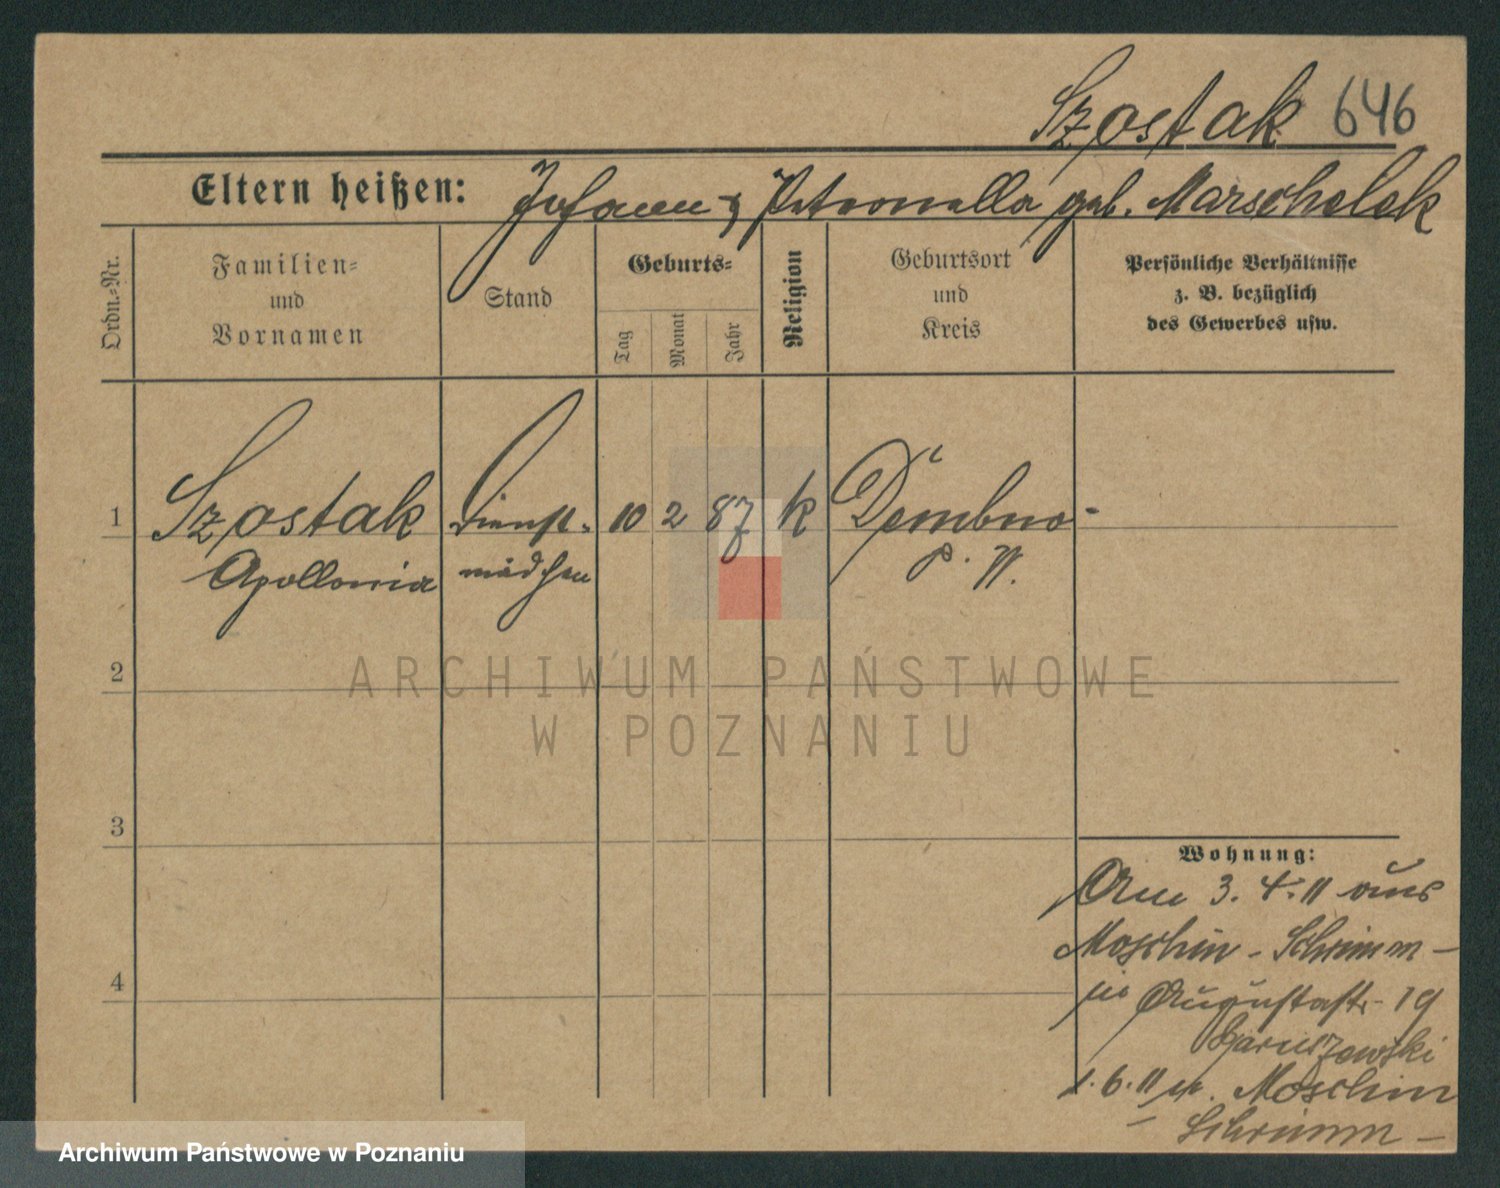 Szostak 646
Eltern heißen: Johann & Petronella geb. Marschelek
Ordn.-Nr.
Familien-
und
Vornamen
Stand
Geburts-
Tag
Monat
Jahr
Religion
Geburtsort
und
Kreis
Persönliche Verhältnisse
z. B. bezüglich
des Gewerbes usw.
1 Szostak Dienst- 10 2 87 k Dembno-
Apollonia mädchen P. W.
2
3
4
Wohnung:
Am 3. 4. 11 aus
Moschin - Schrimm -
in Augustastr. 19
1. 6. 11 n. Moschin
- Schrimm -
ARCHIWUM PAŃSTWOWE
W POZNANIU
Archiwum Państwowe w Poznaniu